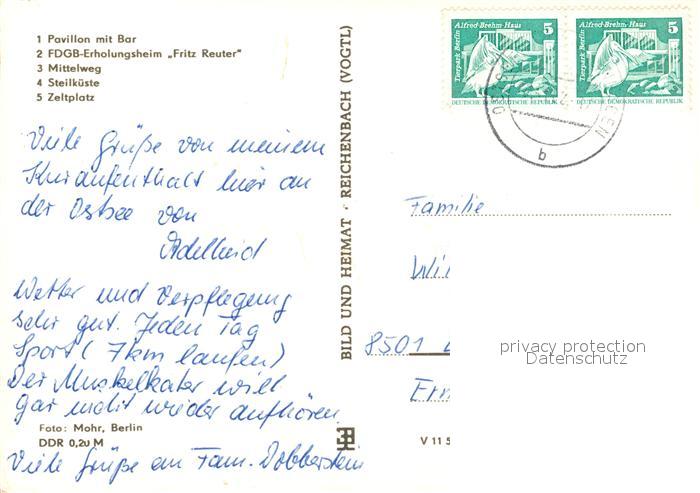 1 Pavillon mit Bar
2 FDGB-Erholungsheim „Fritz Reuter"
3 Mittelweg
4 Steilküste
5 Zeltplatz
Viele Grüße von meinem
Kuraufenthalt hier an
der Ostsee von
Adelheid
Wetter und Verpflegung
sehr gut. Jeden Tag
Sport (7km laufen)
Der Muskelkater will
gar nicht wieder aufhören.
Foto: Mohr, Berlin
DDR 0,20 M
Viele Grüße an Fam. Dobberstein
BILD UND HEIMAT · REICHENBACH (VOGTL)
Alfred-Brehm-Haus 5
Tierpark Berlin
DEUTSCHE DEMOKRATISCHE REPUBLIK
Alfred-Brehm-Haus 5
Tierpark Berlin
DEUTSCHE DEMOKRATISCHE REPUBLIK
b
Familie
Wil
8501
V 11 5
privacy protection
Datenschutz